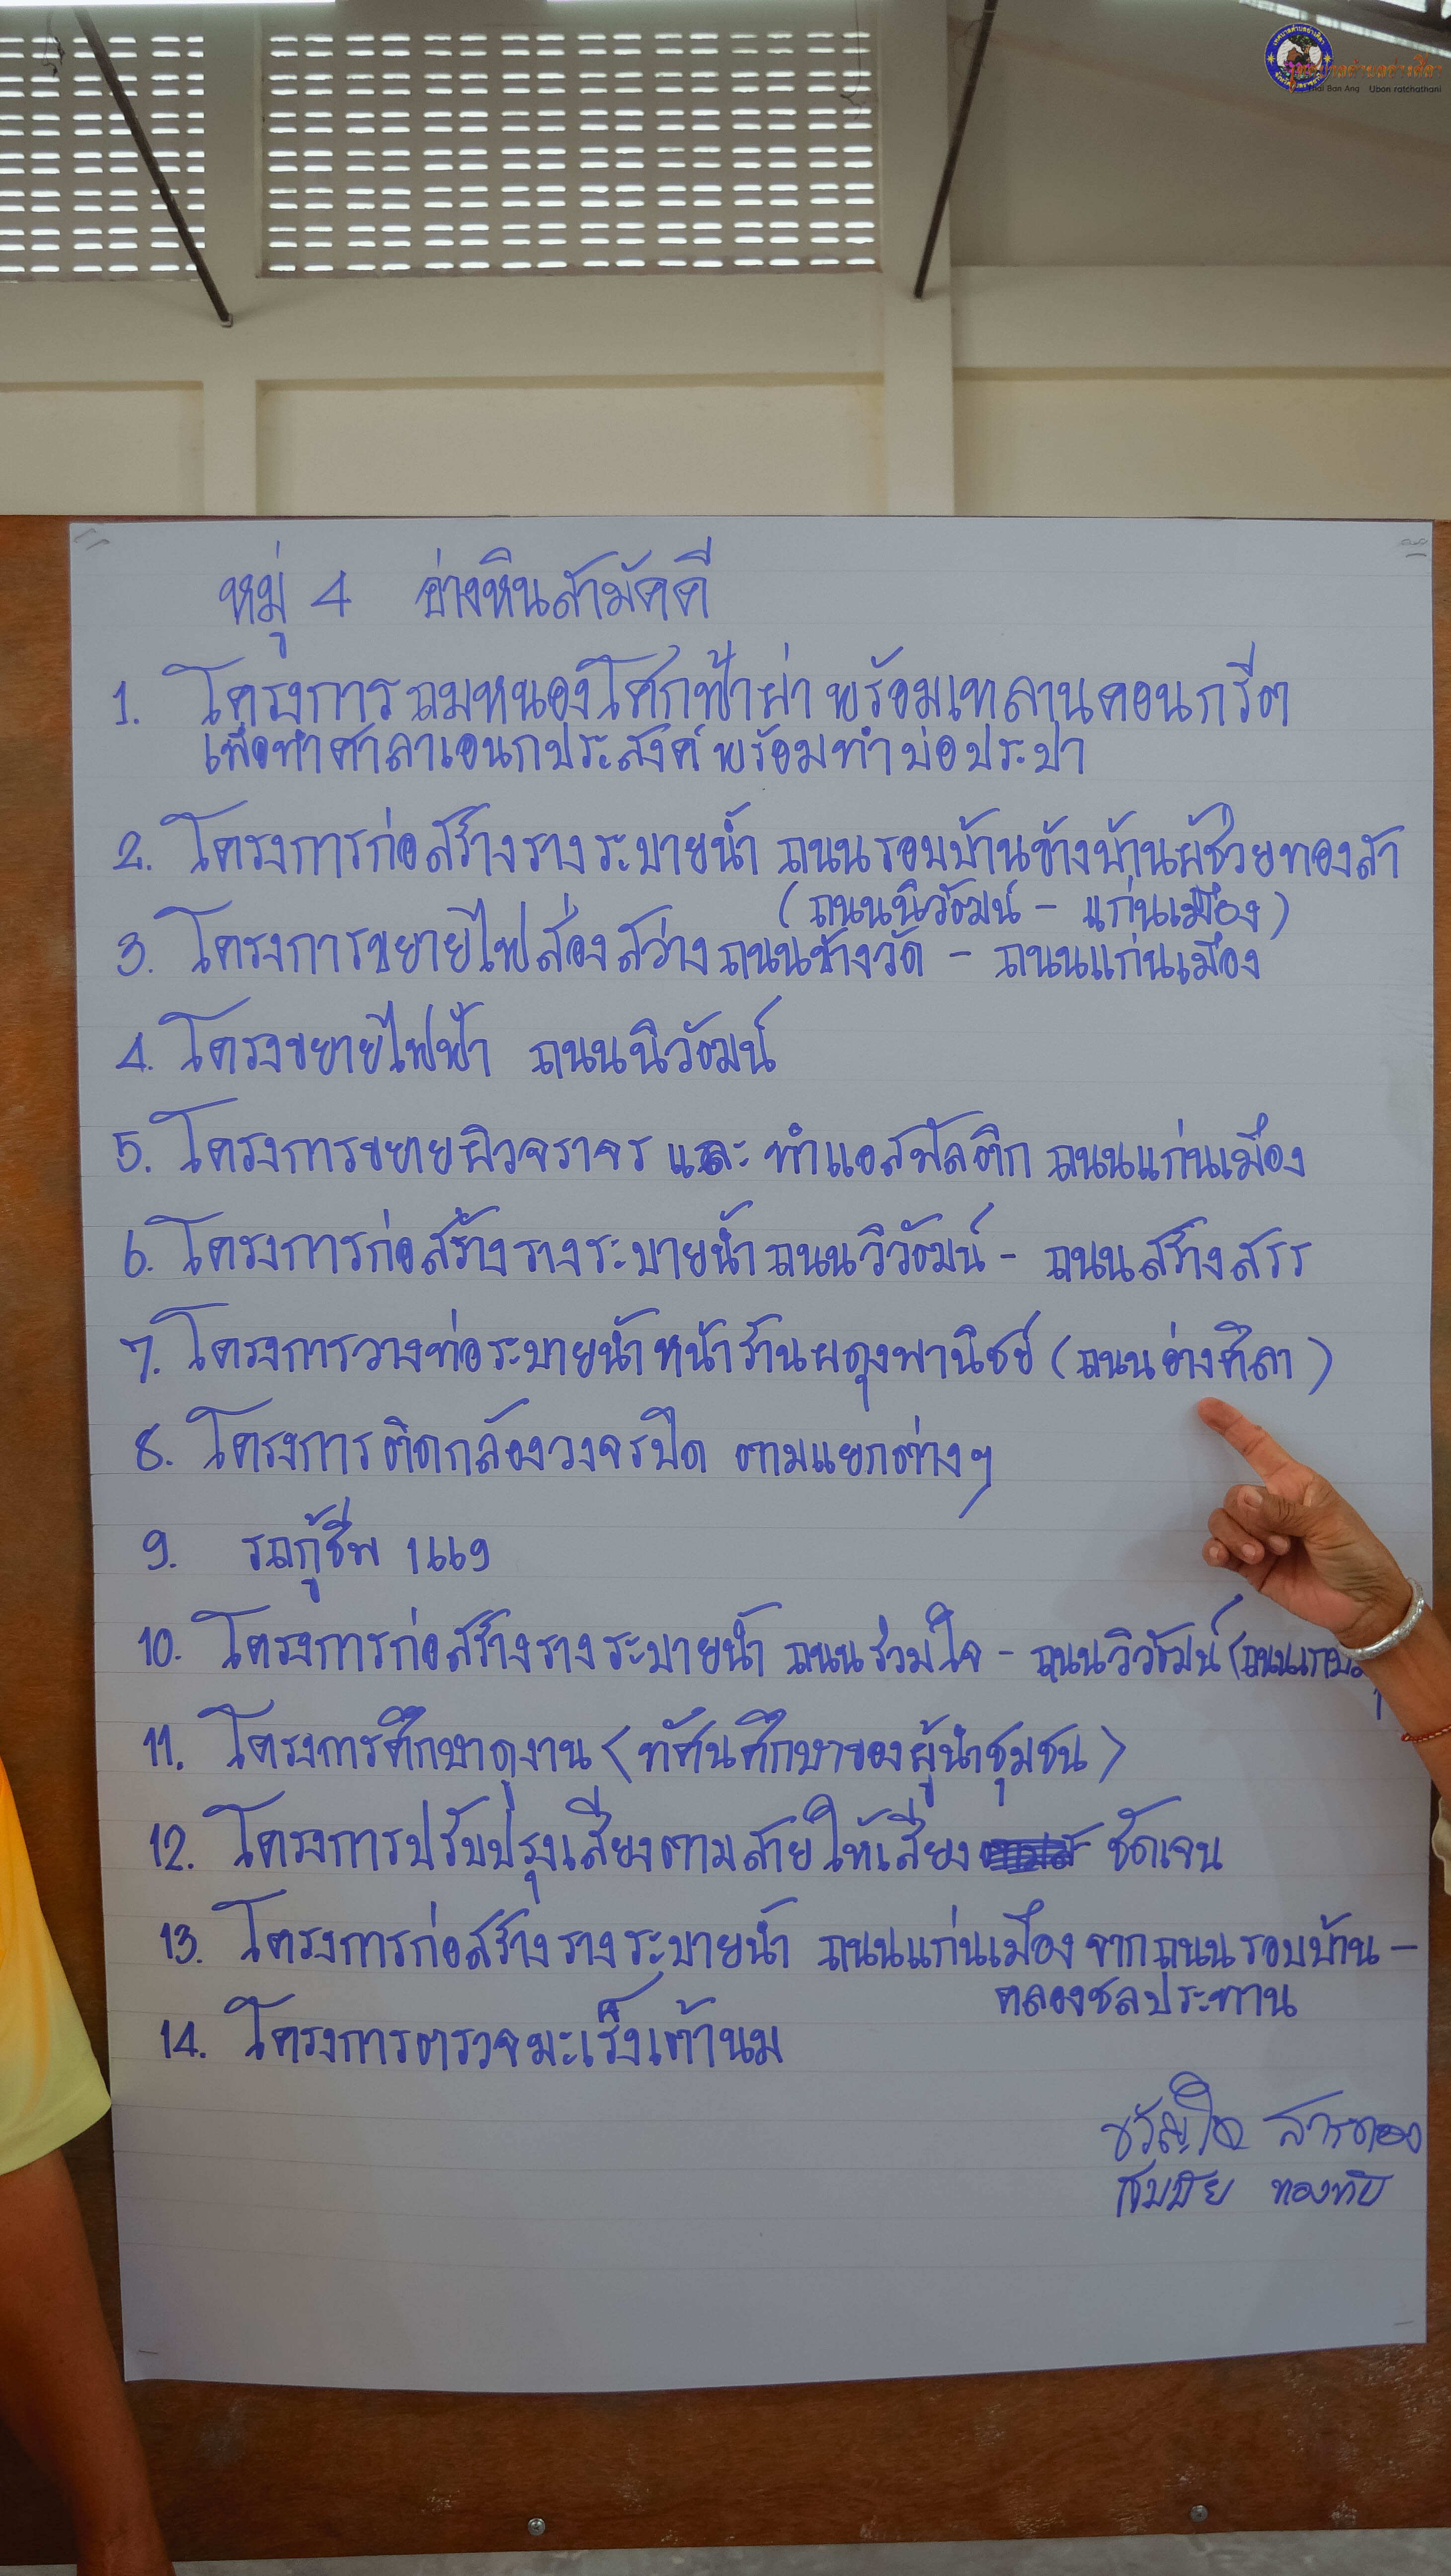 หมู่ 4 อ่างหินสามัคคี
1. โครงการถมหนองโศกฟ้าผ่า พร้อมเทลานคอนกรีต
เพื่อทำศาลาเอนกประสงค์ พร้อมทำบ่อประปา
2. โครงการก่อสร้างรางระบายน้ำ ถนนรอบบ้านข้างบ้านผู้ช่วยทองสา
(ถนนนิวัฒน์ - แก่นเมือง)
3. โครงการขยายไฟส่องสว่างถนนข้างวัด - ถนนแก่นเมือง
4. โครงขยายไฟฟ้า ถนนนิวัฒน์
5. โครงการขยายผิวจราจร และ ทำแอสฟัลติก ถนนแก่นเมือง
6. โครงการก่อสร้างรางระบายน้ำถนนวิวัฒน์ - ถนนสร้างสรร
7. โครงการวางท่อระบายน้ำหน้าร้านผดุงพานิชย์ (ถนนอ่างศิลา)
8. โครงการติดกล้องวงจรปิด ตามแยกต่างๆ
9. รถกู้ชีพ 1669
10. โครงการก่อสร้างรางระบายน้ำ ถนนร่วมใจ - ถนนวิวัฒน์
11. โครงการศึกษาดูงาน (ทัศนศึกษาของผู้นำชุมชน)
12. โครงการปรับปรุงเสียงตามสายให้เสียง ชัดเจน
13. โครงการก่อสร้างรางระบายน้ำ ถนนแก่นเมือง จากถนนรอบบ้าน -
คลองชลประทาน
14. โครงการตรวจมะเร็งเต้านม
Ubon ratchathani